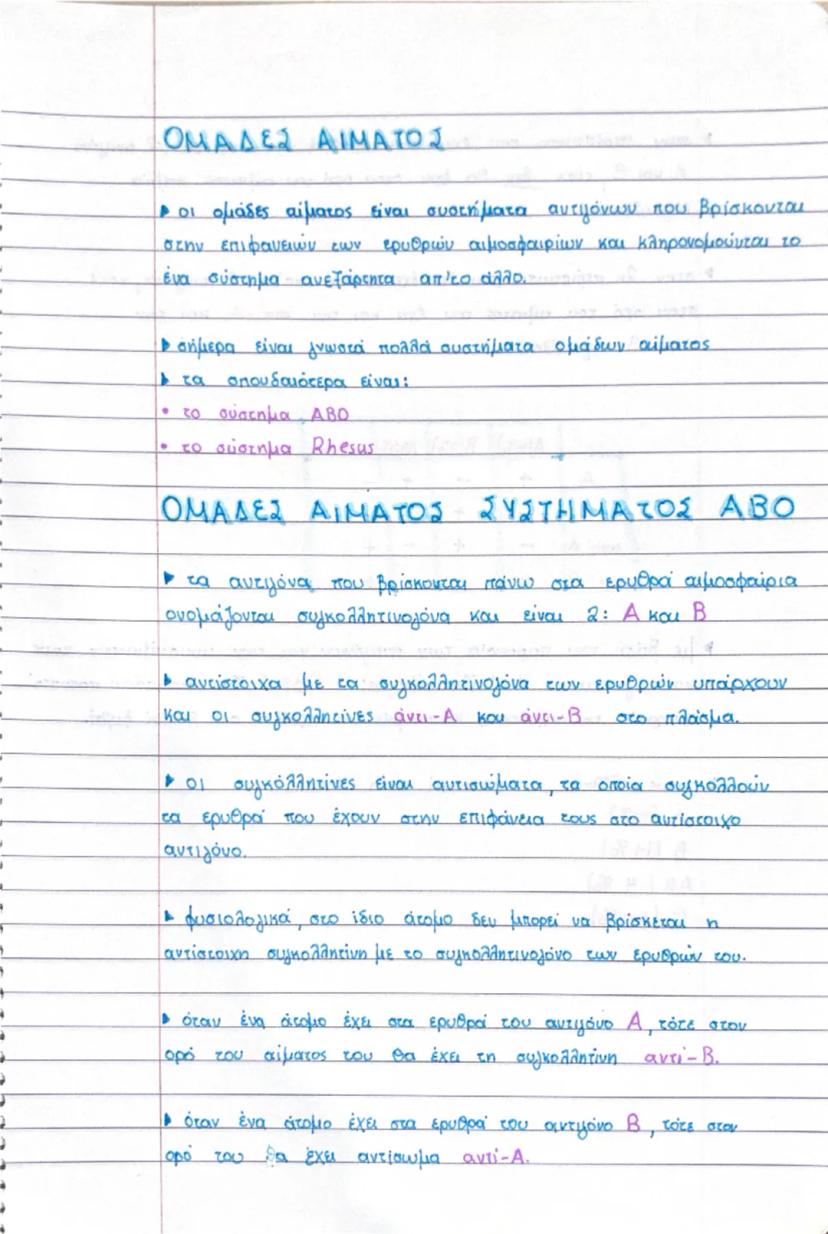 ΟΜΑΔΕΣ ΑΙΜΑΤΟΣ
▸ οι ομάδες αίματος είναι συστήματα αντιγόνων που βρίσκονται
στην επιφανειών των ερυθρών αιμοσφαιρίων και κληρονομούνται το
ένα σύστημα ανεξάρτητα απ'το άλλο.
▸ σήμερα είναι γνωστά πολλά συστήματα ομάδων αίματος
▸ τα σπουδαιότερα είναι:
• το σύστημα ABO
• το σύστημα Rhesus
ΟΜΑΔΕΣ ΑΙΜΑΤΟΣ ΣΥΣΤΗΜΑΤΟΣ ΑΒΟ
▸ τα αντιγόνα που βρίσκονται πάνω στα ερυθρά αιμοσφαίρια
ονομάζονται συγκολλητινογόνα και είναι 2: Α και Β
▸ αντίστοιχα με τα συγκολλητινογόνα των ερυθρών υπάρχουν
και οι συγκολλητίνες άντι-Α και άντι-Β στο πλάσμα.
▸ οι συγκόλλητίνες είναι αντισώματα, τα οποία συγκολλούν
τα ερυθρά που έχουν στην επιφάνεια τους στο αντίστοιχο
αντιγόνο.
▸ φυσιολογικά, στο ίδιο άτομο δεν μπορεί να βρίσκεται η
αντίστοιχη συγκολλητίνη με το συγκολλητινογόνο των ερυθρών του.
▸ όταν ένα άτομο έχει στα ερυθρά του αντιγόνο Α, τότε στον
ορό του αίματος του θα έχει τη συγκολλητίνη αντί-Β.
▸ όταν ένα άτομο έχει στα ερυθρά του αντιγόνο Β, τότε στον
ορό του θα έχει αντίσωμα αντί-Α.